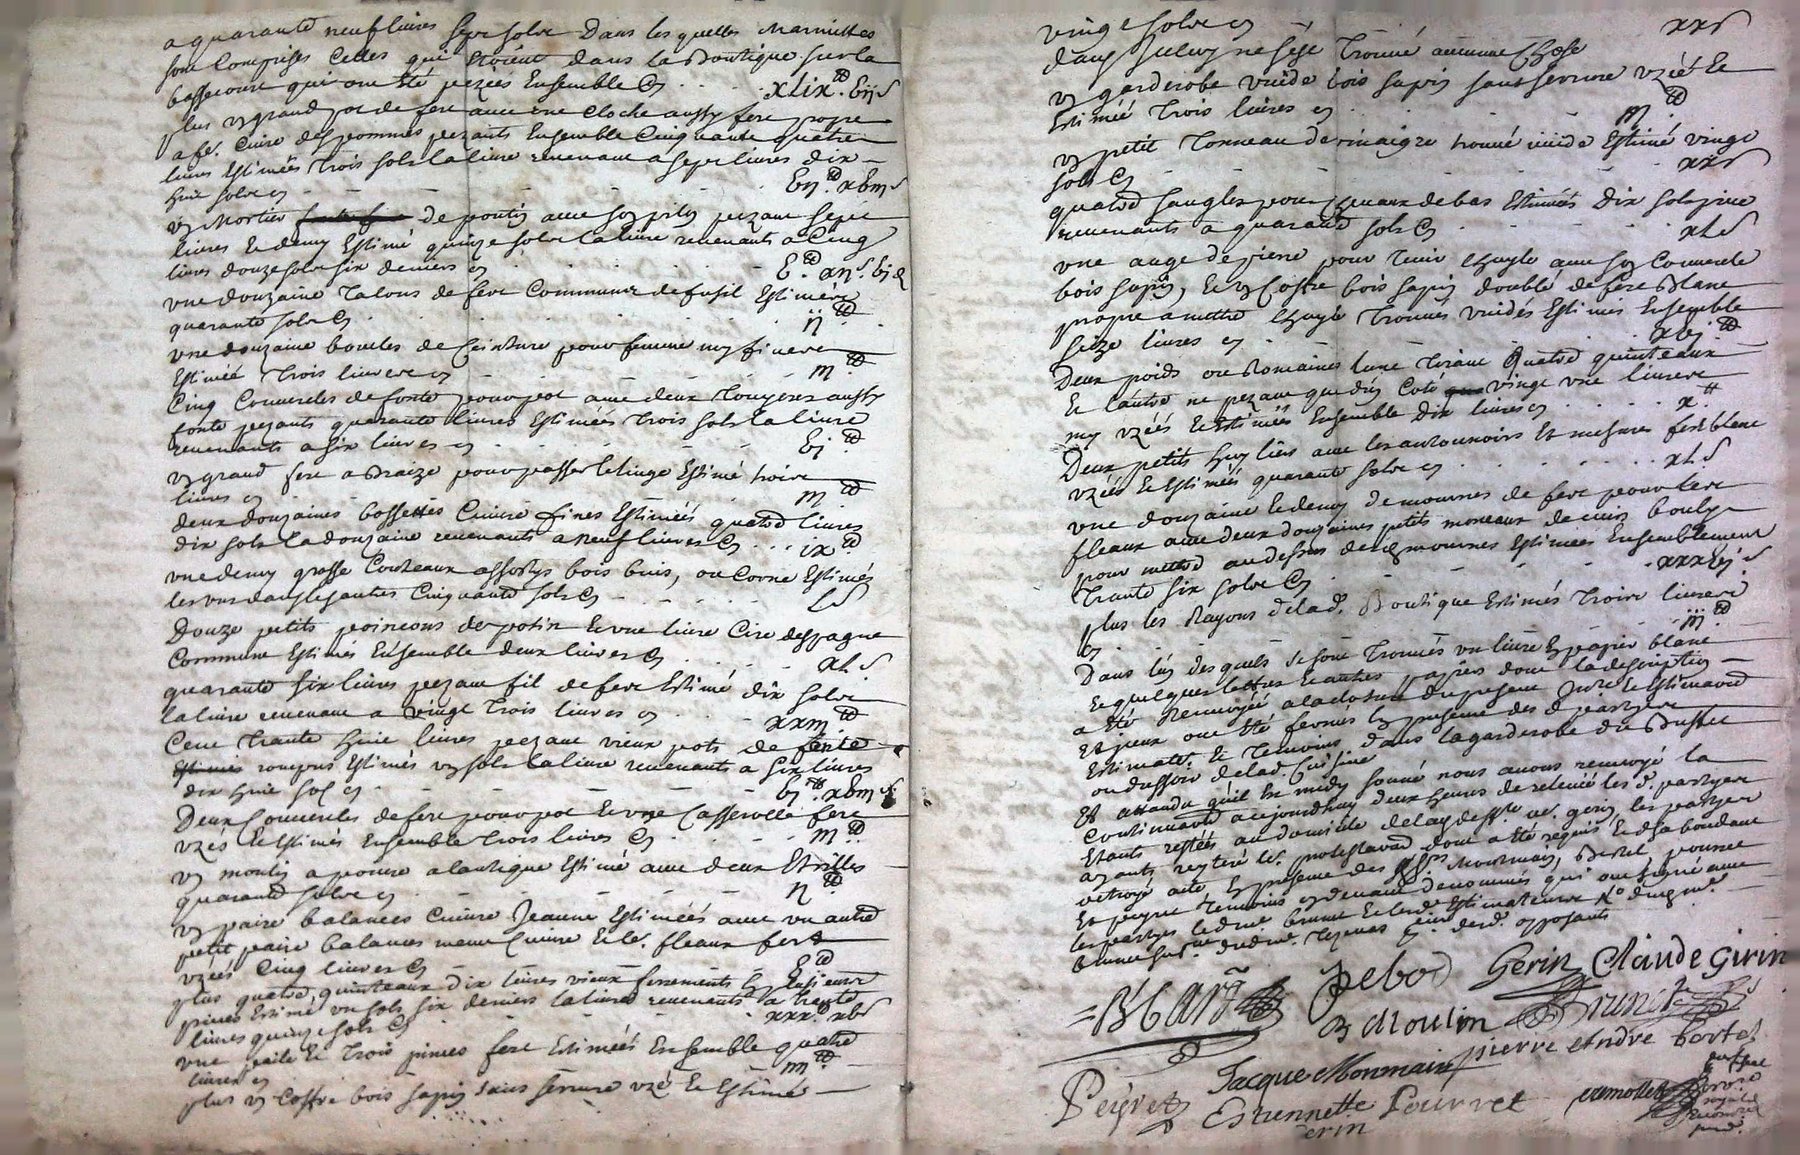 a quarante neuf livres sept solz Dans lesquelles Marmittes
sont Comprises Celles qui Etoient dans la Boutique sur la
bassecourt qui ont été pezées Ensemble Cy
xlix.tt vij s
plus un grand pot de fert avec une cloche aussy fert propre
a fe.. Cuire des pommes pezants Ensemble Cinquante quattre
livres Estimées trois sols la livre revenant a sept livres dix
huit solz cy
vij.tt xviij s
un Mortier de potin avec son pilon pezant sept
livres Et demy Estimé quinze solz la livre revenants a Cinq
livres douze solz six deniers cy
v.tt xij.s vj d
une douzaine talons de fert Communs de fusil Estimées
quarante solz Cy
ij tt
une douzaine boucles de Ceinture pour femme my fines
Estimée trois livres cy
iij tt
Cinq Couvercles de fonte pour pot avec deux aussy
fonte pezants quarante livres Estimées trois sols la livre
revenants a six livres cy
vj tt
un grand fert a Braize pour passer le linge Estimé trois
livres cy
iij tt
deux douzaines bossettes Cuivre fines Estimées quatre livres
dix sols la douzaine revenants a neuf livres Cy ix tt
une demy grosse Couteaux assortys bois buis, ou Corne Estimés
les uns dans les autres Cinquante sols Cy
L s
Douze petits poincons de potin Et une livre Cire despagne
Commune Estimés Ensemble deux livres Cy
xL s
quarante six livres pezant fil de fert Estimé dix solz
la livre revenant a vingt trois livres cy
xxiij tt
Cent trante huit livres pezant vieux pots de fonte
rompus Estimés un sols la livre revenants a six livres
dix huit sols cy
vj.tt xviij s
Deux Couvercles de fert pour pot Et une Casserolle fert
uzés Et Estimés Ensemble trois livres Cy
iij tt
un moulin a poivre a lantique Estimé avec deux Etrilles
quarante solz cy
ij tt
un paire balances Cuivre Jeaune Estimées avec un autre
petit paire balances meme Cuivre Et le. fleaux fert
uzées Cinq livres Cy
v tt
plus quatre quinteaux dix livres vieux ferrements En plusieurs
pieces Estimé un sols six deniers la livre revenants a trente
livres quinze sols Cy
xxx.tt xv s
une paile Et trois pinces fert Estimées Ensemble quatre
livres cy
iiij tt
plus un Coffre bois sapin sans serrure uzé Et Estimé
vingt solz cy
xx s
dans iceluy ne sest trouvé aucune Chose
un garderobe vuide bois sapin sans serrure uzéé Et
Estimée trois livres cy
iij tt
un petit tonneau de vinaigre trouvé vuide Estimé vingt
sols Cy
xx s
quatre sangles pour chevaux de bas Estimées dix sols piece
revenants a quarante sols Cy
xL s
une auge de pierre pour tenir lhuyle avec son Couvercle
bois sapin, Et un Coffre bois sapin doublé de fert Blanc
propre a mettre lhuyle trouvés vuidés Estimés Ensemble
seize livres cy
xvj tt
Deux poids ou Romaines lune tirant Quatre quinteaux
Et lautre ne pezant que dun Coté vingt une livres
my uzées Et Estimées Ensemble dix livres cy
x tt
Deux petits huyliers avec les antonnoirs Et mesures fert blanc
uzées Et Estimées quarante solz cy
xL s
une douzaine Et demy de mournes de fert pour les
fleaux avec deux douzaines petits morceaux de cuir boulys
pour mettre au dessus desd. mournes Estimées Ensemblement
trante six solz Cy
xxxvj s
plus les Rayons de lad. Boutique Estimés trois livres
cy
iij tt
Dans lun desquels se sont trouvés un livre En papier blanc
Et quelques lettres Et autres papiers dont la description
a été Renvoyée a la cloture du present Invre Et Estimation
Et iceux ont été fermés En presence des d. partyes
Estimatr. Et temoins dans la garderobe du Buffet
ou dressoir de lad. Cuisine
Et attandu quil Est midy sonné nous avons renvoyé la
Continuation a ajourdhuy deux heures de relevée les d. partyes
Etants restées au domicile de lad. defte. ve. gerin les partyes
ayants reytéré les. protestations dont a été requis
octroyé acte En presence des Srs. Monmain, Bertet, pourret
Et peyret temoins cydevant denommés qui ont signé avec
les partyes
=B'Gary Jebo Gerin Claude Girin
B Moulin Brunet
Jacque Monmain pierre Andre bertet
Peyret Estiennette Pourret
Gerin